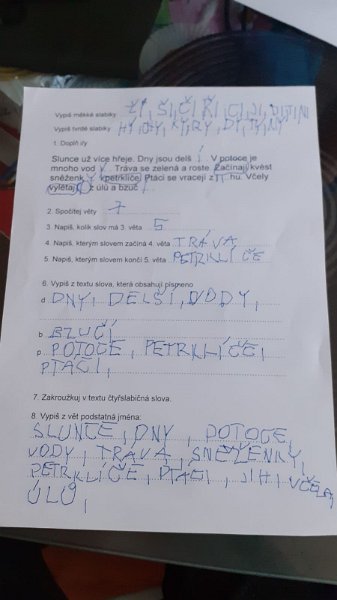 Vypiš měkké slabiky ŽI, ŠI, ČI, ŘI, CI, JI, DI, TI, NI
Vypiš tvrdé slabiky HY, KY, RY, DY, TY, NY
1. Doplň i/y
Slunce už více hřeje. Dny jsou delš í. V potoce je
mnoho vod y. Tráva se zelená a roste. Začínají kvést
sněženk y, petrklíče. Ptáci se vracejí z JI hu. Včely
vylétají z úlů a bzuč í.
2. Spočítej věty 7
3. Napiš, kolik slov má 3. věta 5
4. Napiš, kterým slovem začíná 4. věta TRÁVA
5. Napiš, kterým slovem končí 5. věta PETRKLÍČE
6. Vypiš z textu slova, která obsahují písmeno
d DNY, DELŠÍ, VODY,
b BZUČÍ
p POTOCE, PETRKLÍČE,
PTÁCI,
7. Zakroužkuj v textu čtyřslabičná slova.
8. Vypiš z vět podstatná jména:
SLUNCE, DNY, POTOCE,
VODY, TRÁVA, SNĚŽENKY,
PETRKLÍČE, PTÁCI, JIH, VČELY,
ÚLŮ,